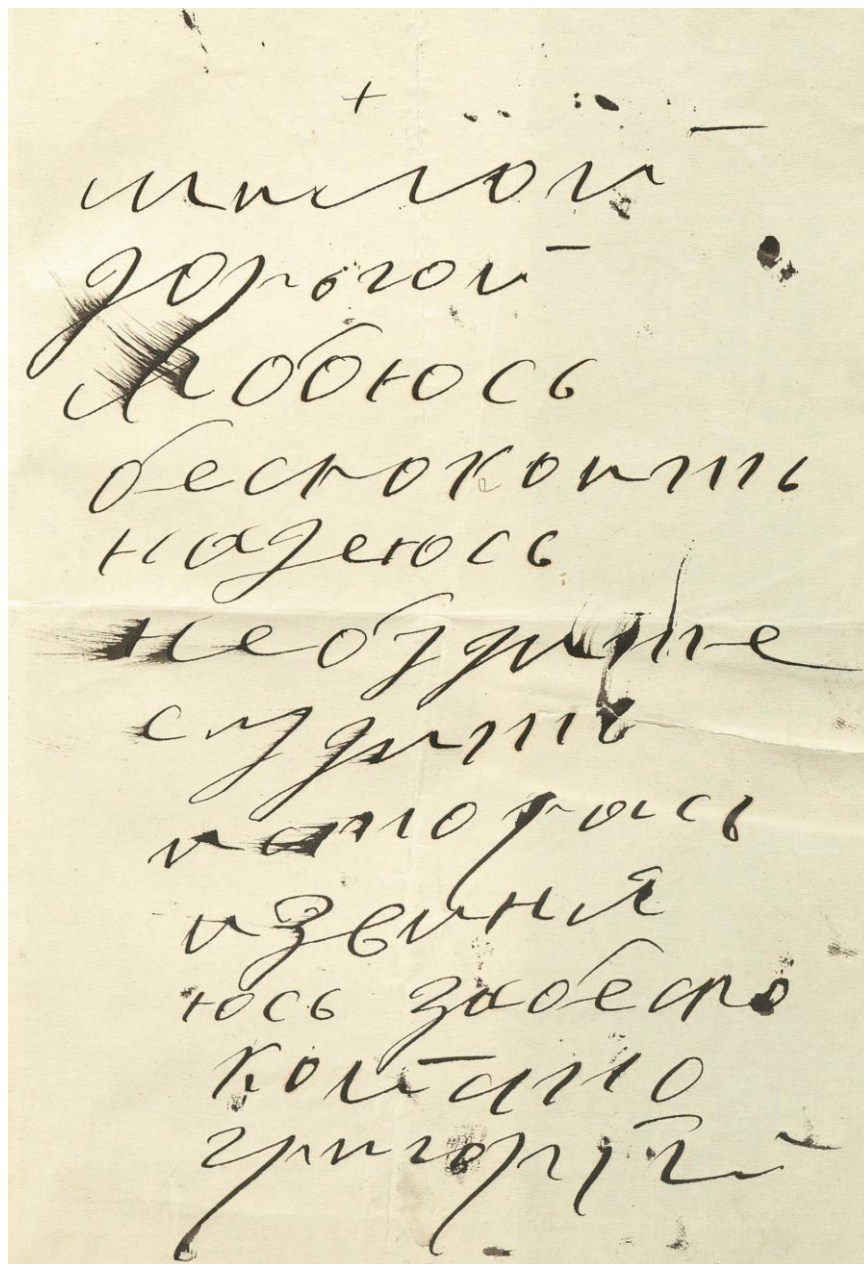 +
милой
дорогой
я обоюсь
беспокоить
надеюсь
небудите
судить
извиня
юсь забеспо
койство
григорий